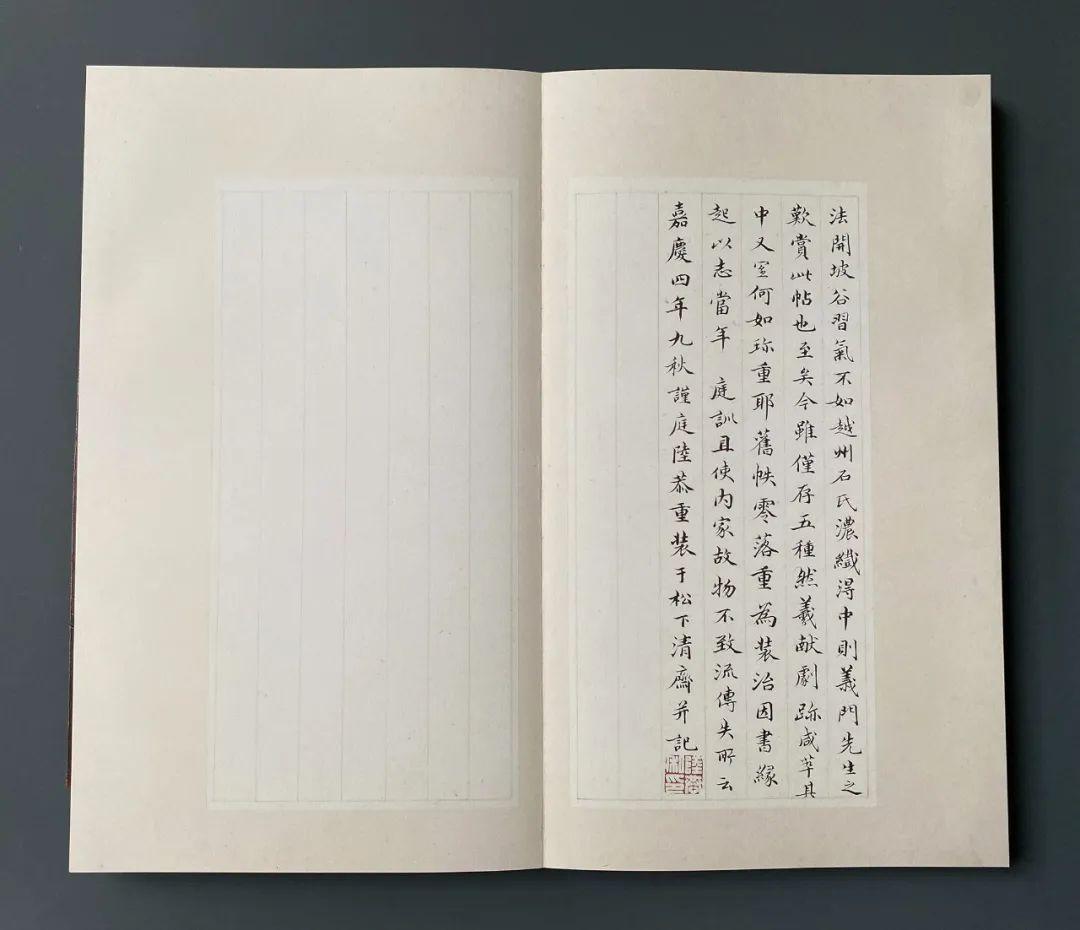 法開坡谷習氣不如越州石氏濃纖得中則義門先生之
歎賞此帖也至矣今雖僅存五種然羲献劇跡咸萃其
中又宜何如珎重耶舊帙零落重為裝治因書緣
起以志當年 庭訓且使内家故物不致流傳失所云
嘉慶四年九秋謹庭陸恭重裝于松下清齋并記